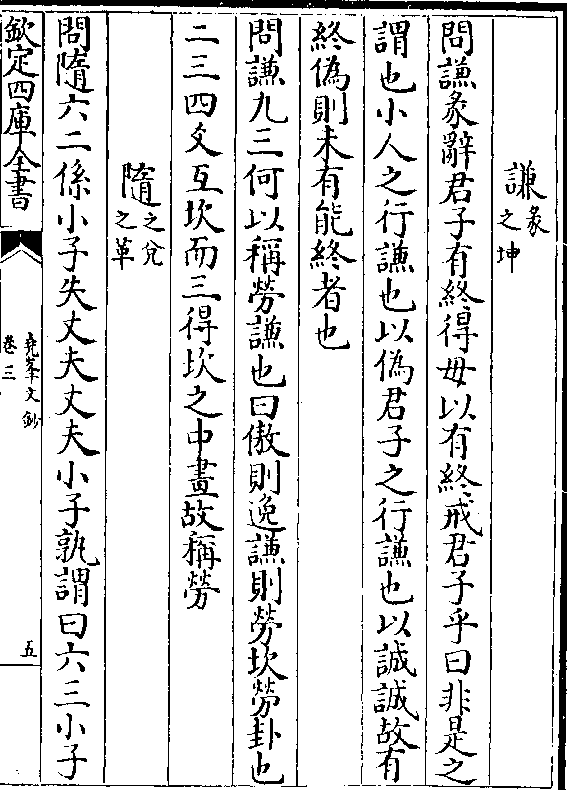 謙彖之坤
問謙彖辭君子有終得毋以有終戒君子乎曰非是之
謂也小人之行謙也以偽君子之行謙也以誠誠故有
終偽則未有能終者也
問謙九三何以稱勞謙也曰傲則逸謙則勞坎勞卦也
二三四爻互坎而三得坎之中畫故稱勞
隨之兌之革
問隨六二係小子失丈夫丈夫小子孰謂曰六三小子
欽定四庫全書
堯峯文鈔
卷三
五